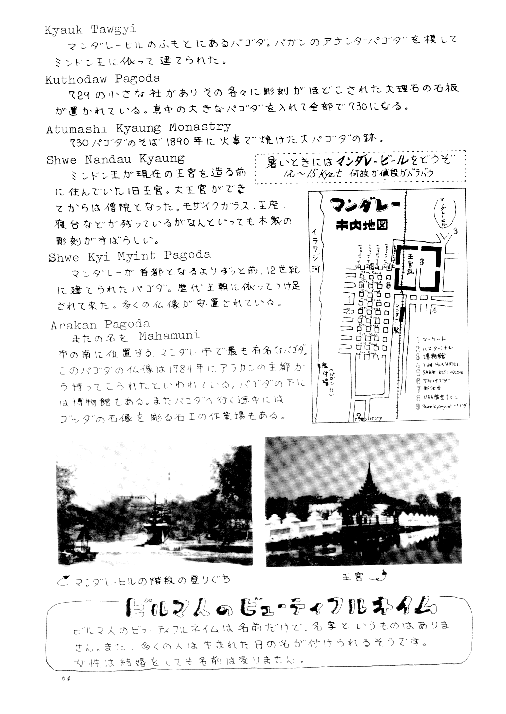 Kyauk Tawgyi
マンダレーヒルのふもとにあるパゴダ。パガンのアナンダパゴダを模して
ミンドン王に依って建てられた。
Kuthodaw Pagoda
729の小さな社がありその各々に彫刻がほどこされた大理石の石板
が置かれている。真中の大きなパゴダを入れて全部で730になる。
Atumashi Kyaung Monastry
730パゴダのそば1890年に火事で焼けた大パゴダの跡。
Shwe Nandau Kyaung
ミンドン王が現在の王宮を造る前
に住んでいた旧王宮。大王宮ができ
てからは僧院となった。モザイクガラス、王座、
寝台などが残っているがなんといっても木製の
彫刻がすばらしい。
暑いときにはマンダレービールをどうぞ
10〜15Kyat 何故か値段がバラバラ
Shwe Kyi Myint Pagoda
マンダレーが首都となるよりずっと前、12世紀
に建てられたパゴダ。歴代王朝に依ってつけ足
されて来た。多くの仏像が安置されている。
Arakan Pagoda
またの名を Mahamuni
市の南に位置する、マンダレー市で最も有名なパゴダ。
このパゴダの仏像は1784年にアラカンの王都か
ら持ってこられたといわれている。パゴダの下に
は博物館もある。またパゴダへ行く途中には
ブッダの石像を彫る石工の作業場もある。
マンダレー
市内地図
イラワジ河
王宮跡
マンダレーヒルの階段の登りぐち
王宮
ビルマ人のビューティフルネイム
ビルマ人のビューティフルネイムは名前だけで、名字というものはありま
せん。また、多くの人は生まれた日の名が付けられるそうです。
女性は結婚をしても名前は変りません。